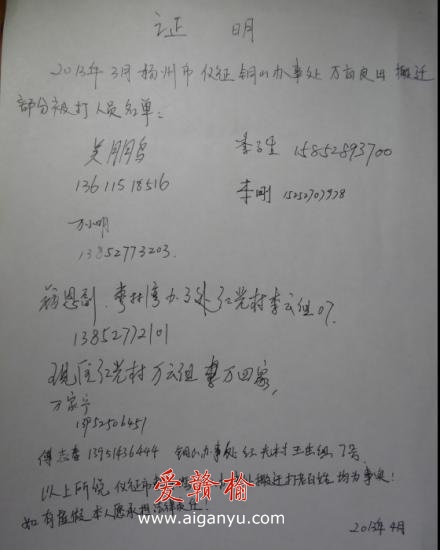 证 明
2013年3月扬州市仪征铜山办事处万亩良田搬迁
部分被打人员名单：
吴朋鸟 李玉生 15852893700
13611518516 李刚 15252707978
万小明
13852773203.
蒋恩 办事处红光村李云组07.
13852772101
现住红光村万云组 万四家,
万家宁
13952506451
傅志春 13951436444 铜山办事处红光村王庄组 7号
以上所说 仪征市 搬迁打老百姓 均为事实!
如有 本人愿承担法律责任.
2013年4月
爱赣榆
www.aiganyu.com